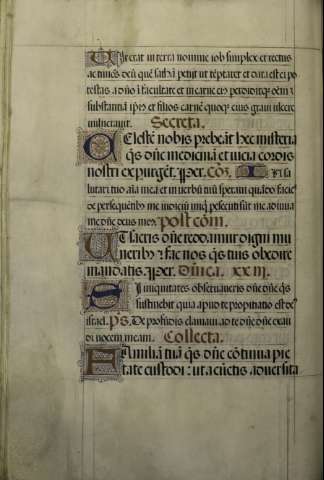 Vir erat in terra nomine iob simplex et rectus
ac timēs deū quē sathan petijt ut tēptaret et data est ei po
testas a dño ī facultate et in carne eiꝰ perdiditqꝫ oēm
substantiā ipiꝰ et filios carnē quoqꝫ eiꝰ graui ulcere
vulnerauit. Secreta.
CElestē nobis prebeāt hec misteria
q̄s dñe medicinā et uicia cordis
nostri expurgēt. p̱xer. Cōꝫ. In sa
lutari tuo aīa mea et in uerbū tuū speraui quādo facies
de persequentibꝰ me iudiciū iniqi persecuti sunt me adiuua
me dñe deus meꝰ. Post com̄.
UT sacris dñe reddamur digni mu
neribꝰ fac nos q̄s tuis obedire
mandatis. p̱xer. Dñica. xxiij.
SI iniquitates obseruaueris dñe dñe q̄s
sustinebit quia apud te propitiatio est deꝰ
israel. p̄s. De profūdis clamaui ad te dñe dñe exau
di uocem meam. Collecta.
FAmiliā tuā q̄s dñe cōtinua pie
tate custodi: ut a cūctis aduersita